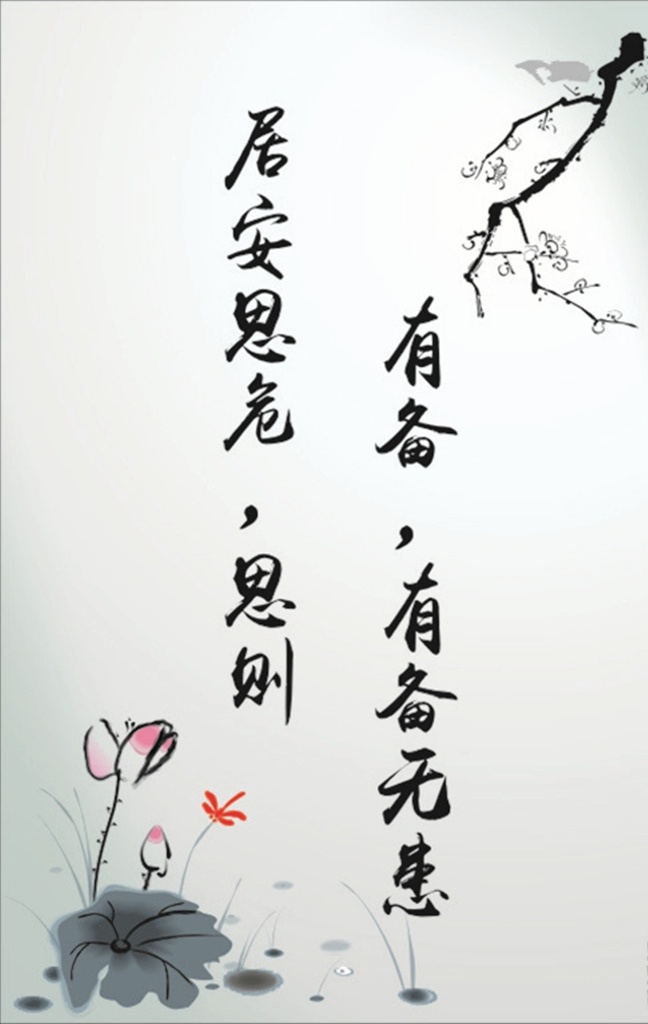 居安思危，思则
有备，有备无患